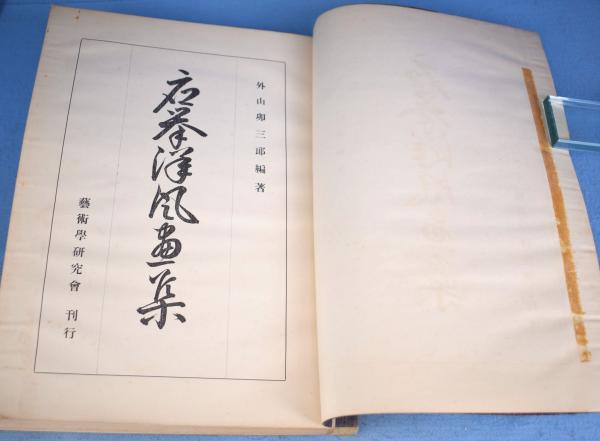 外山卯三郎編著
石峯洋風画集
藝術學研究會 刊行